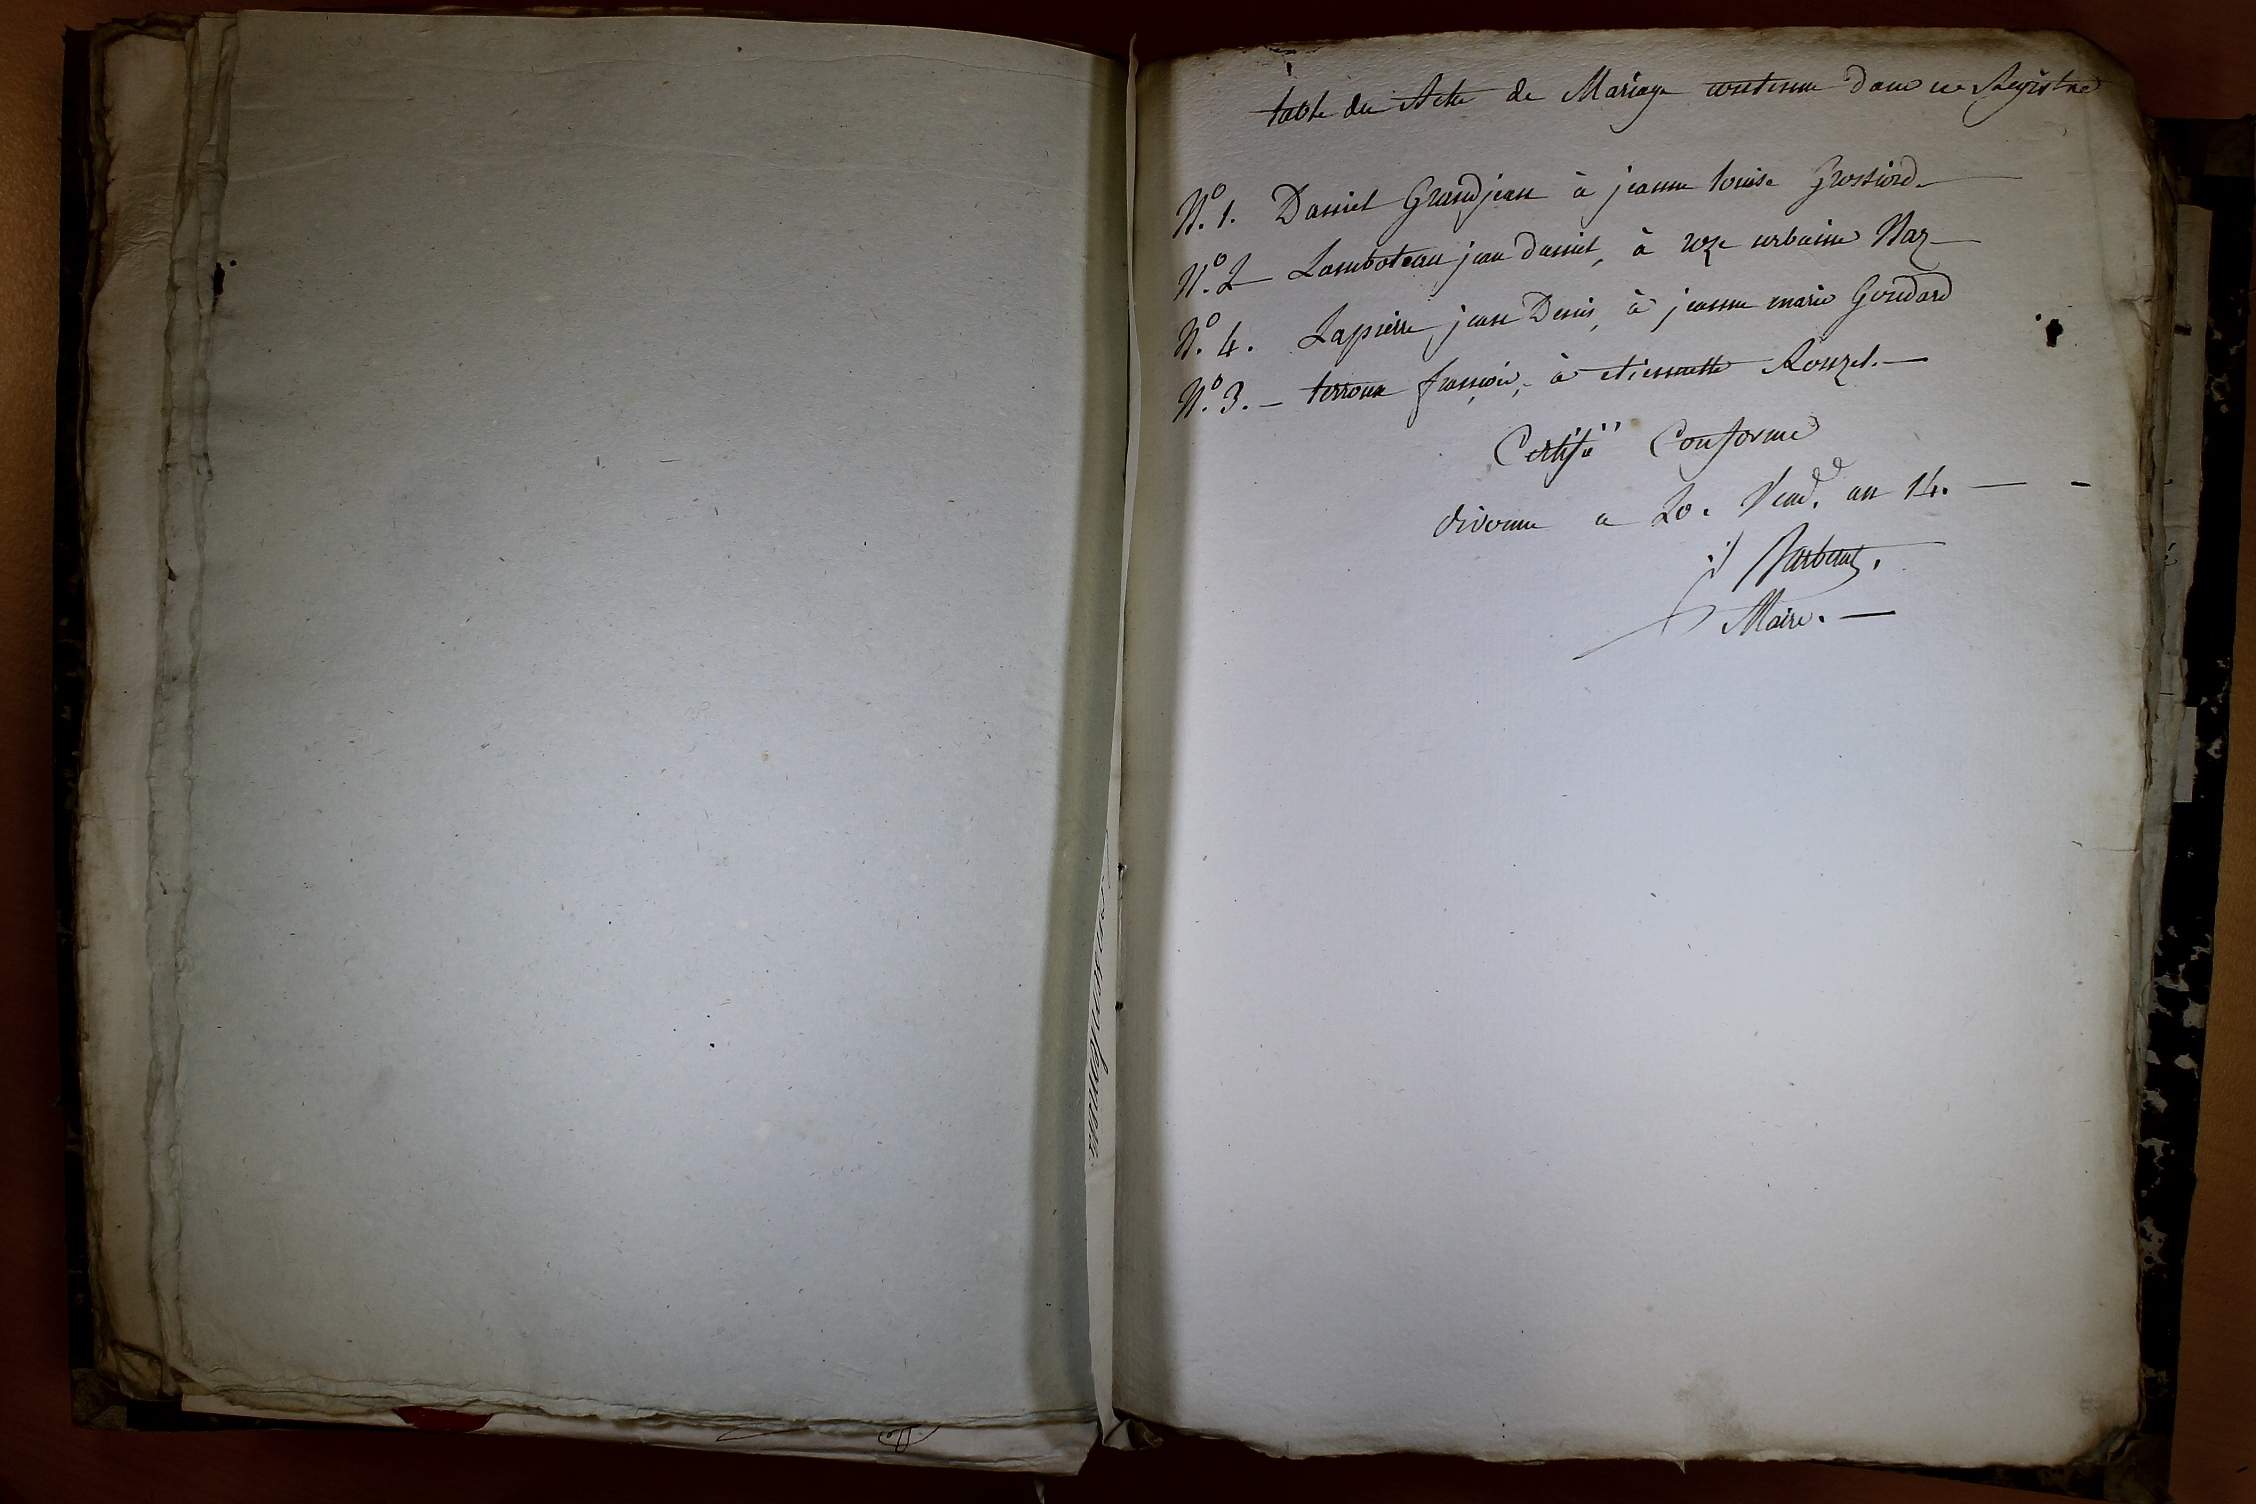 table des Actes de Mariage contenue dans ce Registre
N.º 1. Daniel Grandjean à jeanne louise Grossiord. —
N.º 2 — Lamboteau jean daniel, à roze urbaine Maz —
N.º 4. Lapierre jean Denis, à jeanne marie Goudard
N.º 3. — terroux françois, à etiennette Rouzet. —
Certifié Conforme
divonne ce 20. Vend. an 14. — -
Maire. —